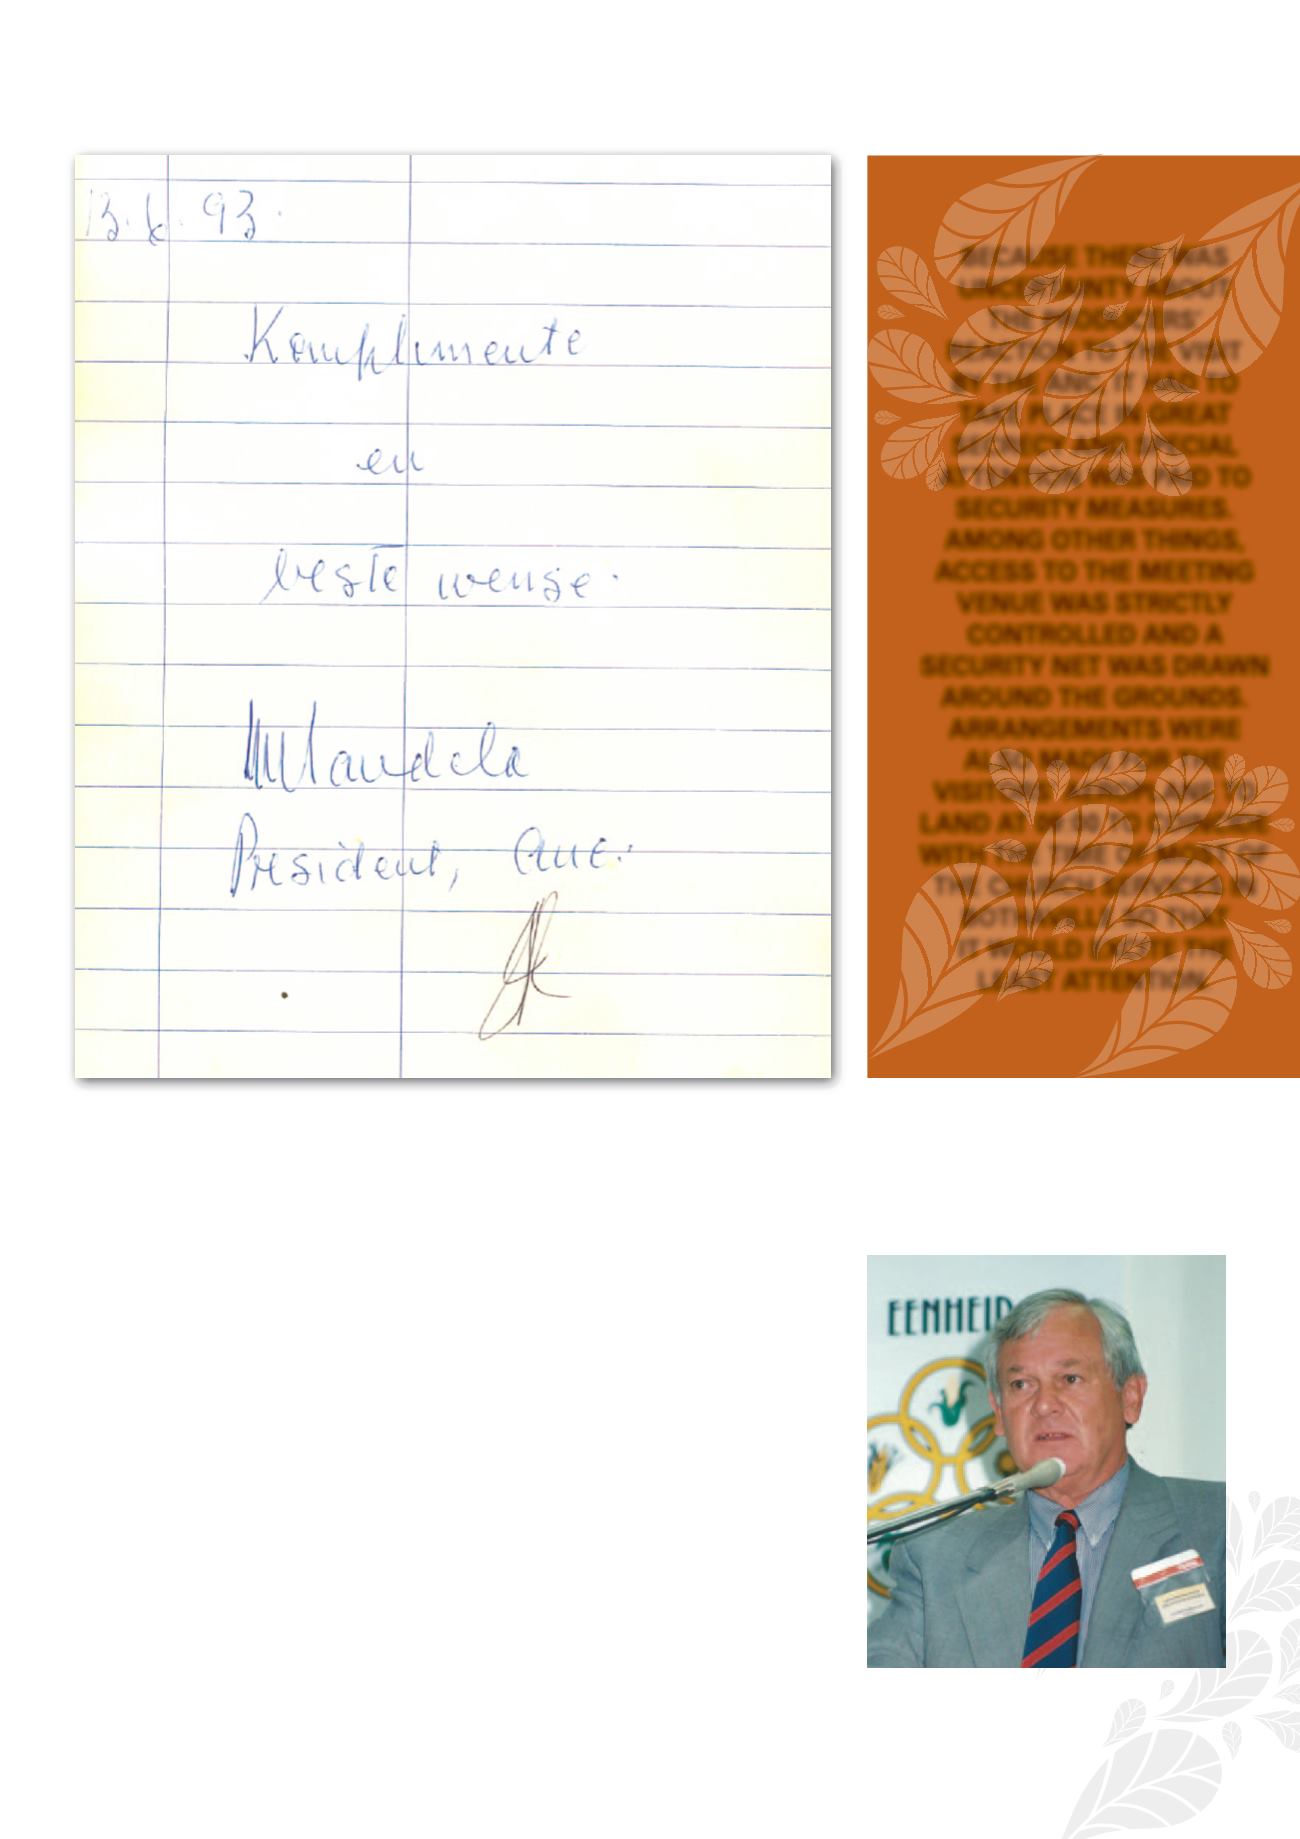 13.6.93.
Komplimente
en
beste wense.
Mandela
President, ANC.
BECAUSE THERE WAS
UNCERTAINTY ABOUT
THE PRODUCERS'
REACTION TO THE VISIT
BY THE ANC, IT HAD TO
TAKE PLACE IN GREAT
SECRECY AND SPECIAL
ATTENTION WAS PAID TO
SECURITY MEASURES.
AMONG OTHER THINGS,
ACCESS TO THE MEETING
VENUE WAS STRICTLY
CONTROLLED AND A
SECURITY NET WAS DRAWN
AROUND THE GROUNDS.
ARRANGEMENTS WERE
ALSO MADE FOR THE
VISITORS' AEROPLANE TO
LAND AT TO COINCIDE
WITH THE TIME OF MOST OF
THE CHURCH SERVICES IN
BOTHAVILLE SO THAT
IT WOULD EXCITE THE
LEAST ATTENTION.
EENHEID